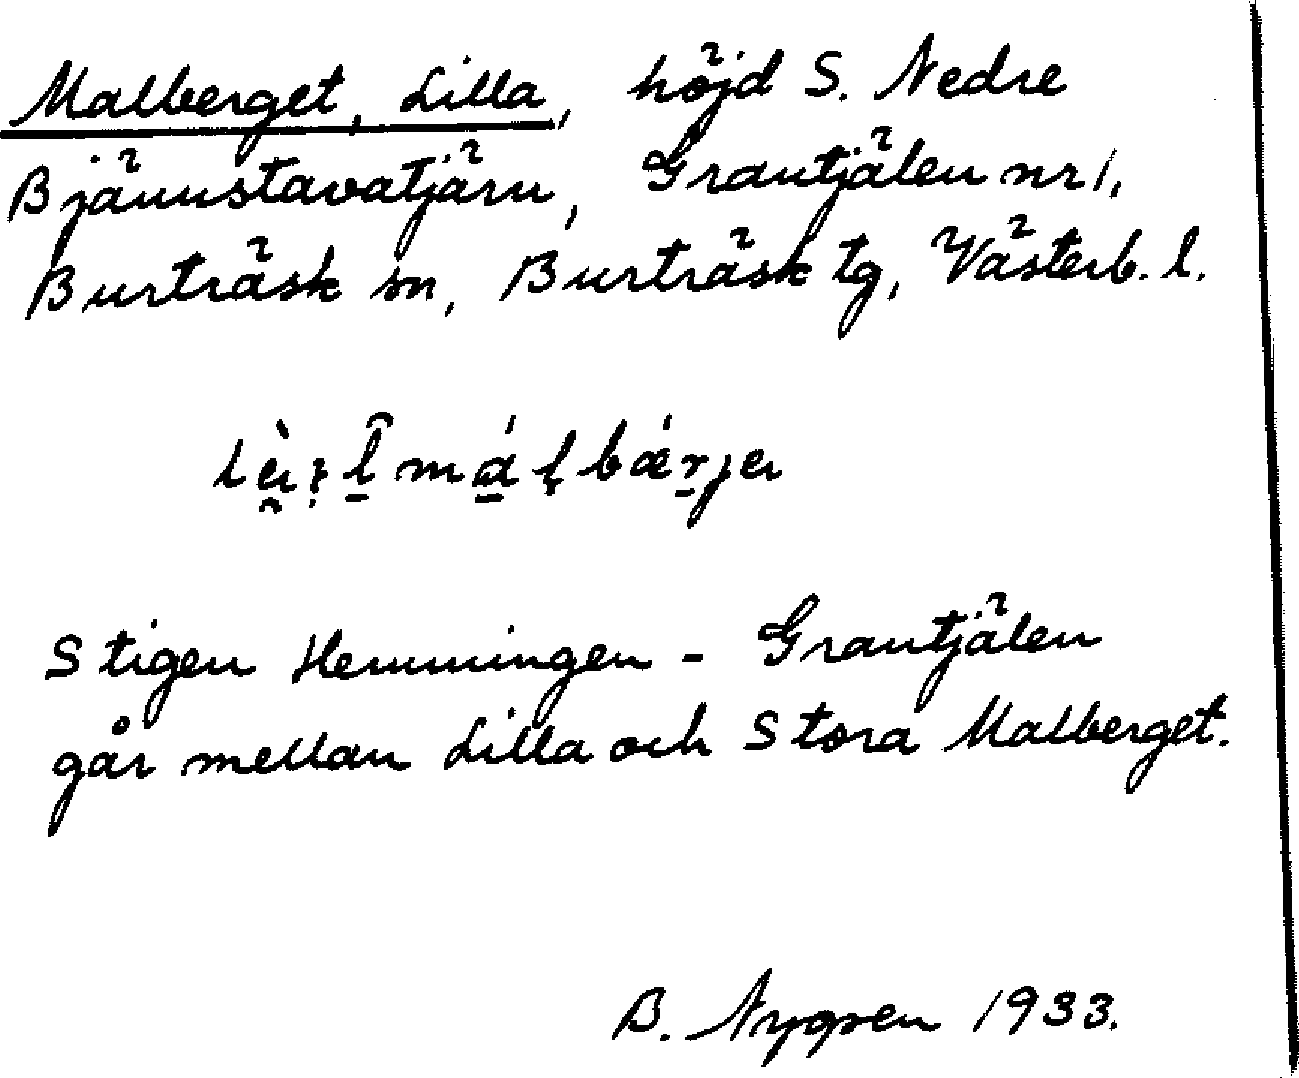 Malberget, Lilla, höjd S. Nedre
Bjännstavatjärn, Grantjälen nr 1,
Burträsk sn, Burträsk tg, Västerb. l.
Stigen Hemmingen - Grantjälen
går mellan Lilla och Stora Malberget.
B. Nygren 1933.